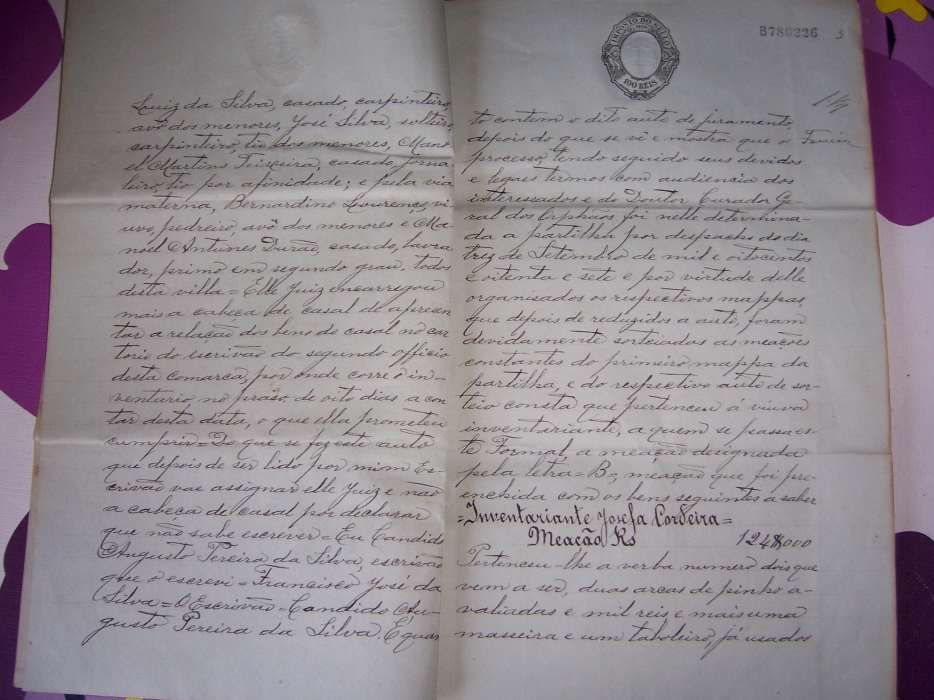 Luiz da Silva, casado, carpinteiro,
avô dos menores, José Silva, solteiro,
carpinteiro, tio dos menores, Mano-
el Martins Teixeira, casado, jorna-
leiro, tio por afinidade; e pela via
materna, Bernardino Lourenço, vi-
uvo, pedreiro, avô dos menores e Ma-
noel Antunes Durão, casado, lavra-
dor, primo em segundo grau, todos
desta villa = Elle Juiz encarregou
mais a cabeça de casal de apresen-
tar a relação dos bens do casal no car-
torio do escrivão do segundo officio
desta comarca, por onde corre o in-
ventario, no praso de oito dias a con-
tar desta data, o que ella prometteu
cumprir = Do que se fez este auto
que depois de ser lido por mim Es-
crivão vae assignar elle Juiz e não
a cabeça de casal por declarar
que não sabe escrever = Eu Candido
Augusto Pereira da Silva, escrivão
que o escrevi = Francisco José da
Silva = O Escrivão = Candido Au-
gusto Pereira da Silva. E quan
IMPOSTO DO SELLO
100 REIS
B780226 3
to contem o dito auto de juramento,
depois do que se vê e mostra que o
processo, tendo seguido seus devidos
e legaes termos com audiencia dos
interessados e do Doutor Curador Ge-
ral dos Orphãos foi nelle determina-
da a partilha por despacho do dia
trez de Setembro de mil e oitocentos
e oitenta e sete e por virtude delle
organisados os respectivos mappas,
que depois de reduzidos a auto, foram
devidamente sorteiados as meações
constantes do primeiro mappa da
partilha, e do respectivo auto de sor-
teio consta que pertenceu á viuva
inventariante, a quem se passa es-
te Formal, a meação designada
pela letra = B =, meação que foi pre-
enchida com os bens seguintes a saber
= Inventariante Josefa Cordeira =
Meação Rs 124$000
Pertenceu-lhe a verba numero dois que
vem a ser, duas arcas de pinho a-
valiadas e mil reis e mais uma
masseira e um taboleiro, já usados